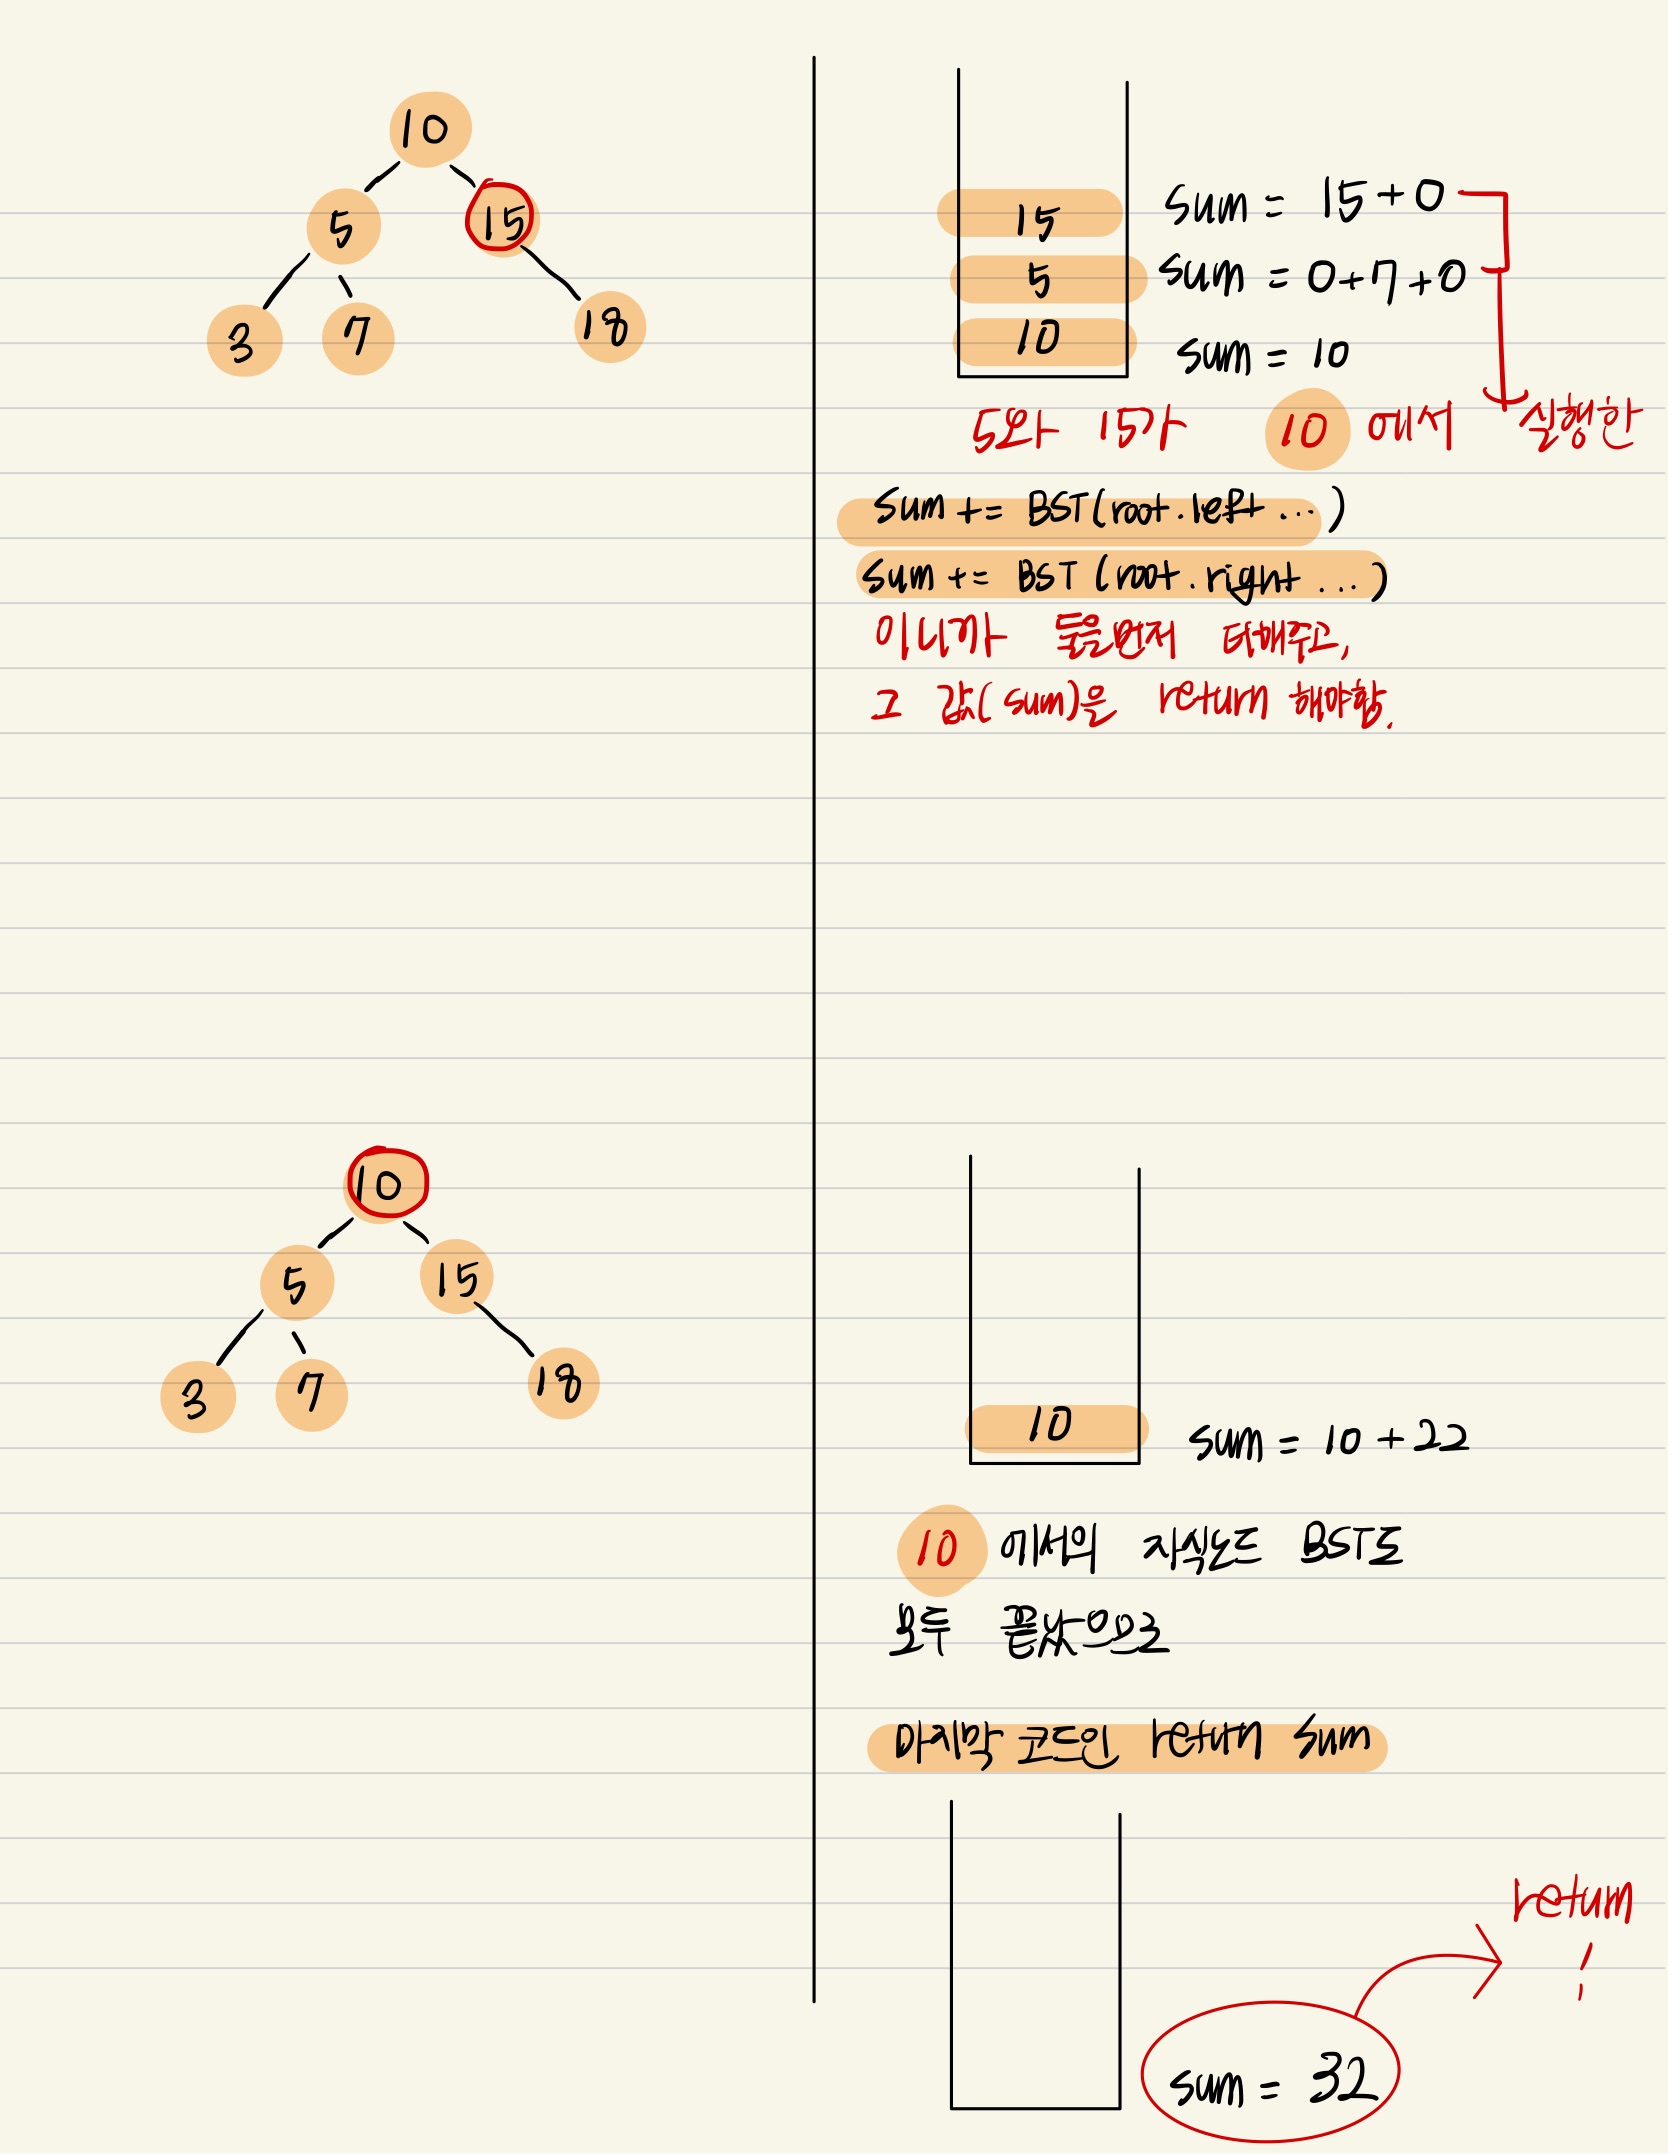 10
5 15
3 7 18
15 sum = 15+0
5 sum = 0+7+0
10 sum = 10
5와 15가 10 에서 실행한
sum += BST(root.left ...)
sum += BST (root.right ...)
이니까 둘을먼저 더해주고,
그 값(sum)을 return 해야함.
10
5 15
3 7 18
10 sum = 10 +22
10 에서의 자식노드 BST도
모두 끝났으므로
마지막 코드인 return sum
return
!
sum = 32